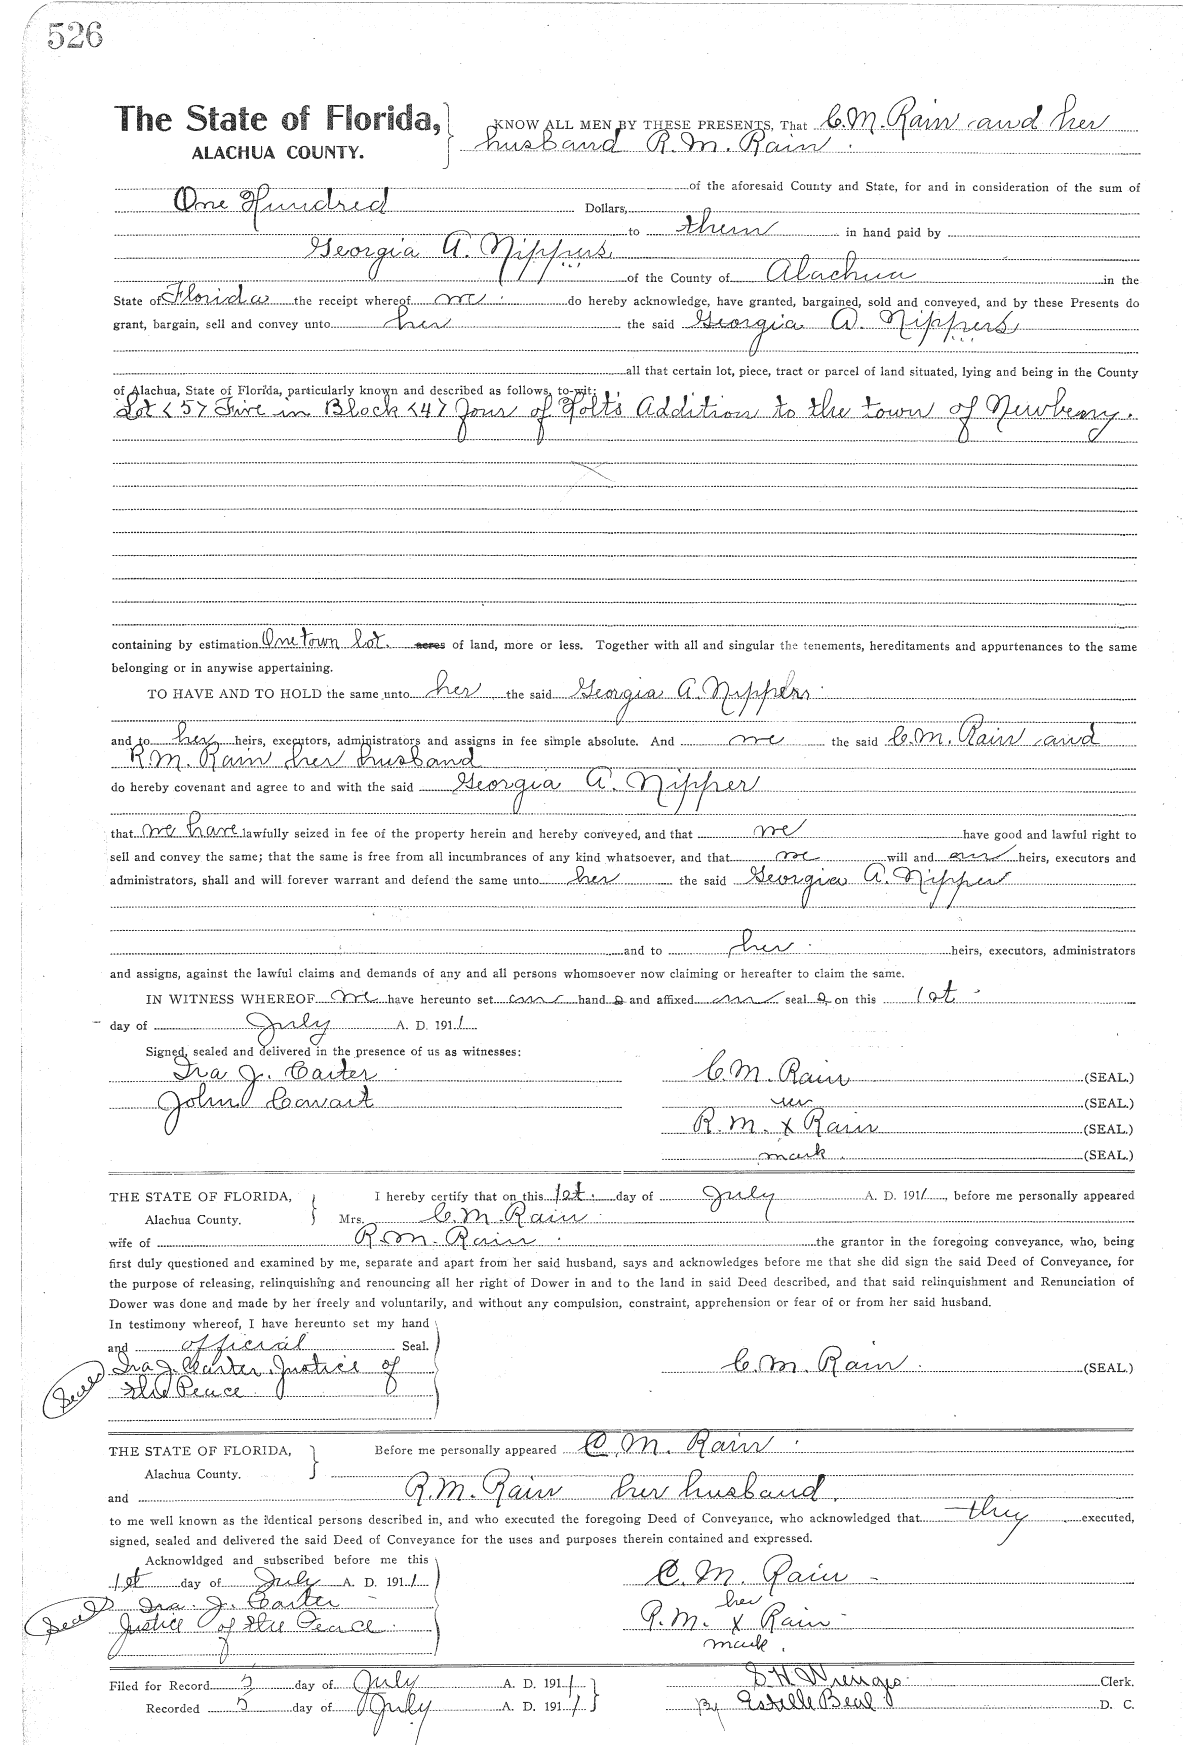 526
The State of Florida, KNOW ALL MEN BY THESE PRESENTS, That C. M. Rain and her
ALACHUA COUNTY. husband R. M. Rain
of the aforesaid County and State, for and in consideration of the sum of
One Hundred Dollars,
to them in hand paid by
Georgia A. Nippers
of the County of Alachua in the
State of Florida the receipt whereof we do hereby acknowledge, have granted, bargained, sold and conveyed, and by these Presents do
grant, bargain, sell and convey unto her the said Georgia A. Nippers
all that certain lot, piece, tract or parcel of land situated, lying and being in the County
of Alachua, State of Florida, particularly known and described as follows, to-wit:
Lot <5> Five in Block <4> four of Holts Addition to the town of Newberry.
containing by estimation One town lot. acres of land, more or less. Together with all and singular the tenements, hereditaments and appurtenances to the same
belonging or in anywise appertaining.
TO HAVE AND TO HOLD the same unto her the said Georgia A. Nippers
and to her heirs, executors, administrators and assigns in fee simple absolute. And we the said C. M. Rain and
R. M. Rain her husband
do hereby covenant and agree to and with the said Georgia A. Nipper
that we have lawfully seized in fee of the property herein and hereby conveyed, and that we have good and lawful right to
sell and convey the same; that the same is free from all incumbrances of any kind whatsoever, and that we will and our heirs, executors and
administrators, shall and will forever warrant and defend the same unto her the said Georgia A. Nipper
and to her heirs, executors, administrators
and assigns, against the lawful claims and demands of any and all persons whomsoever now claiming or hereafter to claim the same.
IN WITNESS WHEREOF we have hereunto set our hand s and affixed our seal s on this 1st
day of July A. D. 1911
Signed, sealed and delivered in the presence of us as witnesses:
Ira J. Carter C. M. Rain (SEAL.)
John Cowart (SEAL.)
R. M. x Rain (SEAL.)
mark (SEAL.)
THE STATE OF FLORIDA, I hereby certify that on this 1st. day of July A. D. 1911, before me personally appeared
Alachua County. Mrs. C. M. Rain
wife of R. M. Rain the grantor in the foregoing conveyance, who, being
first duly questioned and examined by me, separate and apart from her said husband, says and acknowledges before me that she did sign the said Deed of Conveyance, for
the purpose of releasing, relinquishing and renouncing all her right of Dower in and to the land in said Deed described, and that said relinquishment and Renunciation of
Dower was done and made by her freely and voluntarily, and without any compulsion, constraint, apprehension or fear of or from her said husband.
In testimony whereof, I have hereunto set my hand
and official Seal.
Seal Ira J. Carter Justice of C. M. Rain (SEAL.)
the Peace
THE STATE OF FLORIDA, Before me personally appeared C. M. Rain
Alachua County.
and R. M. Rain her husband.
to me well known as the identical persons described in, and who executed the foregoing Deed of Conveyance, who acknowledged that they executed,
signed, sealed and delivered the said Deed of Conveyance for the uses and purposes therein contained and expressed.
Acknowldged and subscribed before me this
1st day of July A. D. 1911 C. M. Rain
Seal Ira. J. Carter her
Justice of the Peace R. M. x Rain
mark.
Filed for Record 3 day of July A. D. 1911 S. H. Wienges Clerk.
Recorded 5 day of July A. D. 1911 By Estelle Beal D. C.